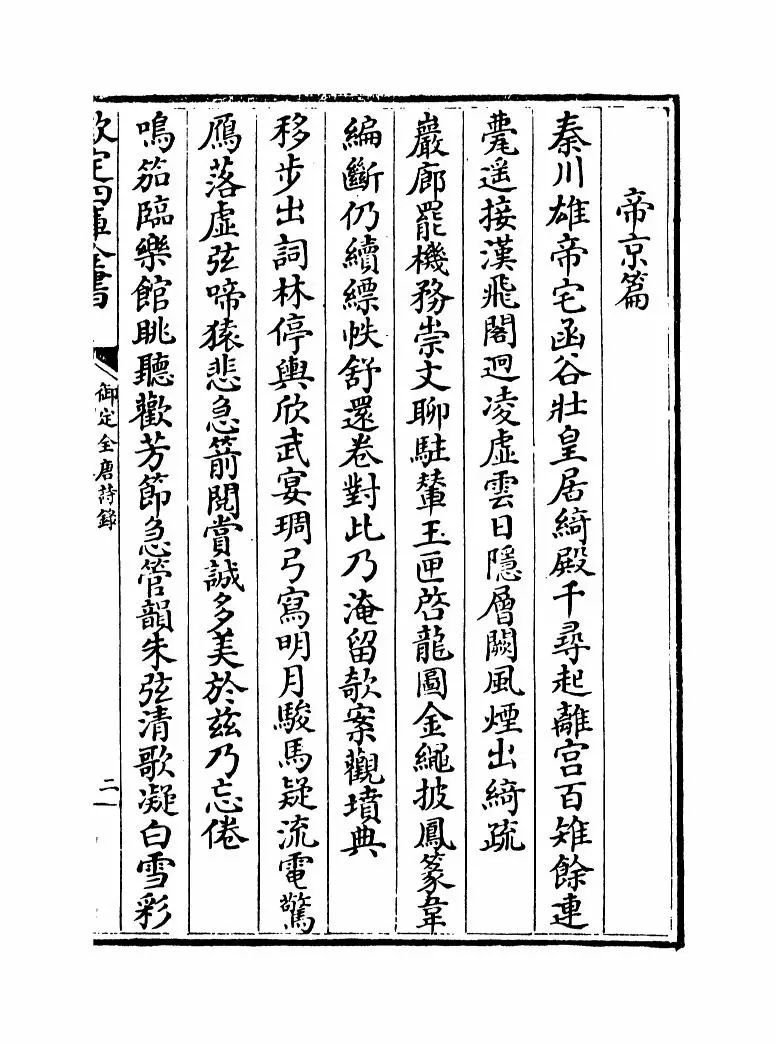 帝京篇
秦川雄帝宅函谷壯皇居綺殿千尋起離宫百雉餘連
甍遥接漢飛閣迥凌虚雲日隱層闕風煙出綺疏
巖廊罷機務崇文聊駐輦玉匣啓龍圖金繩披鳳篆韋
編斷仍續縹帙舒還卷對此乃淹留欹案觀墳典
移步出詞林停輿欣武宴琱弓寫明月駿馬疑流電驚
鴈落虚弦啼猿悲急箭閱賞誠多美於兹乃忘倦
鳴笳臨樂館眺聽歡芳節急管韻朱弦清歌凝白雪彩
欽定四庫全書
御定全唐詩錄
二